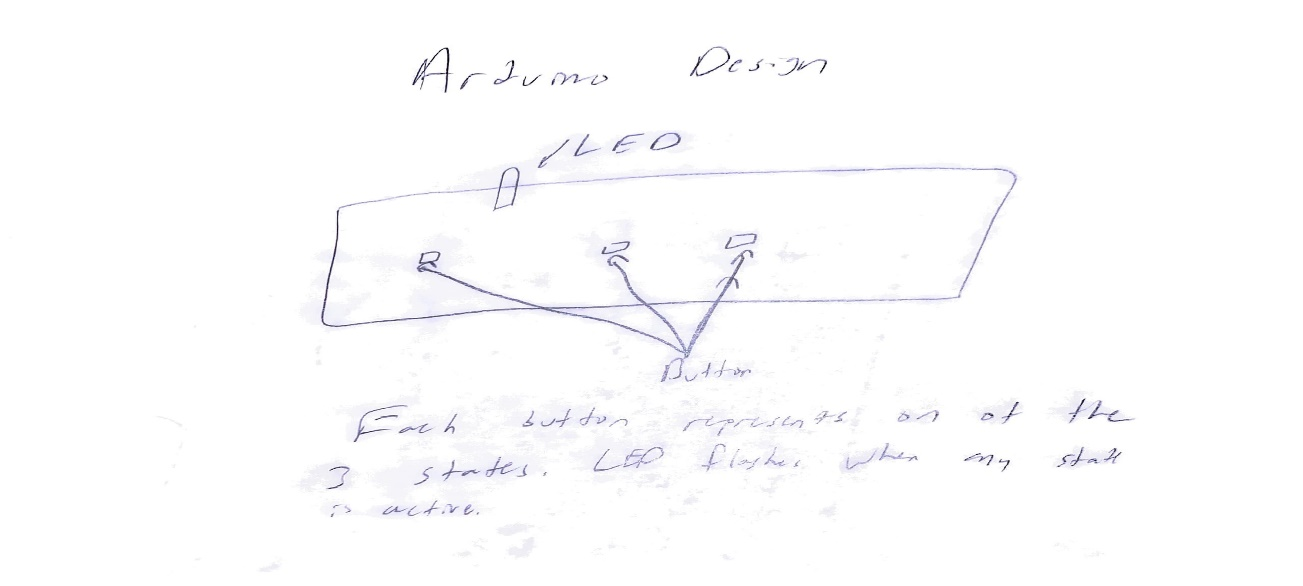 Arduino Design
LED
Button
Each button represents on of the
3 states. LED flashes when any state
is active.